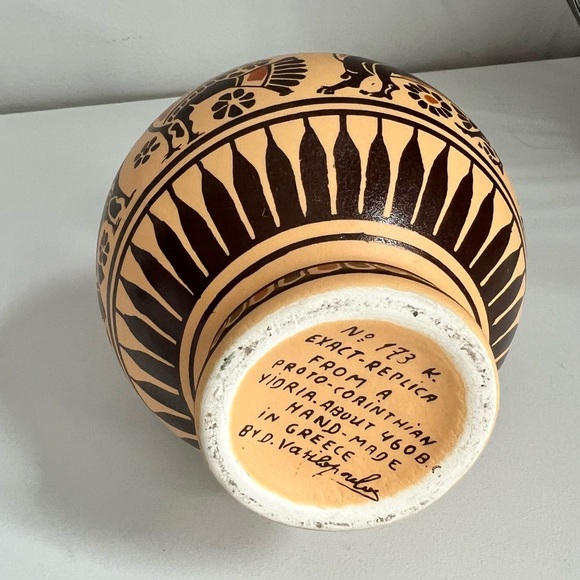 Nº 173 K.
EXACT-REPLICA
FROM A
PROTO-CORINTHIAN
YIDRIA-ABOUT 460B.C
HAND-MADE
IN GREECE
BY D.